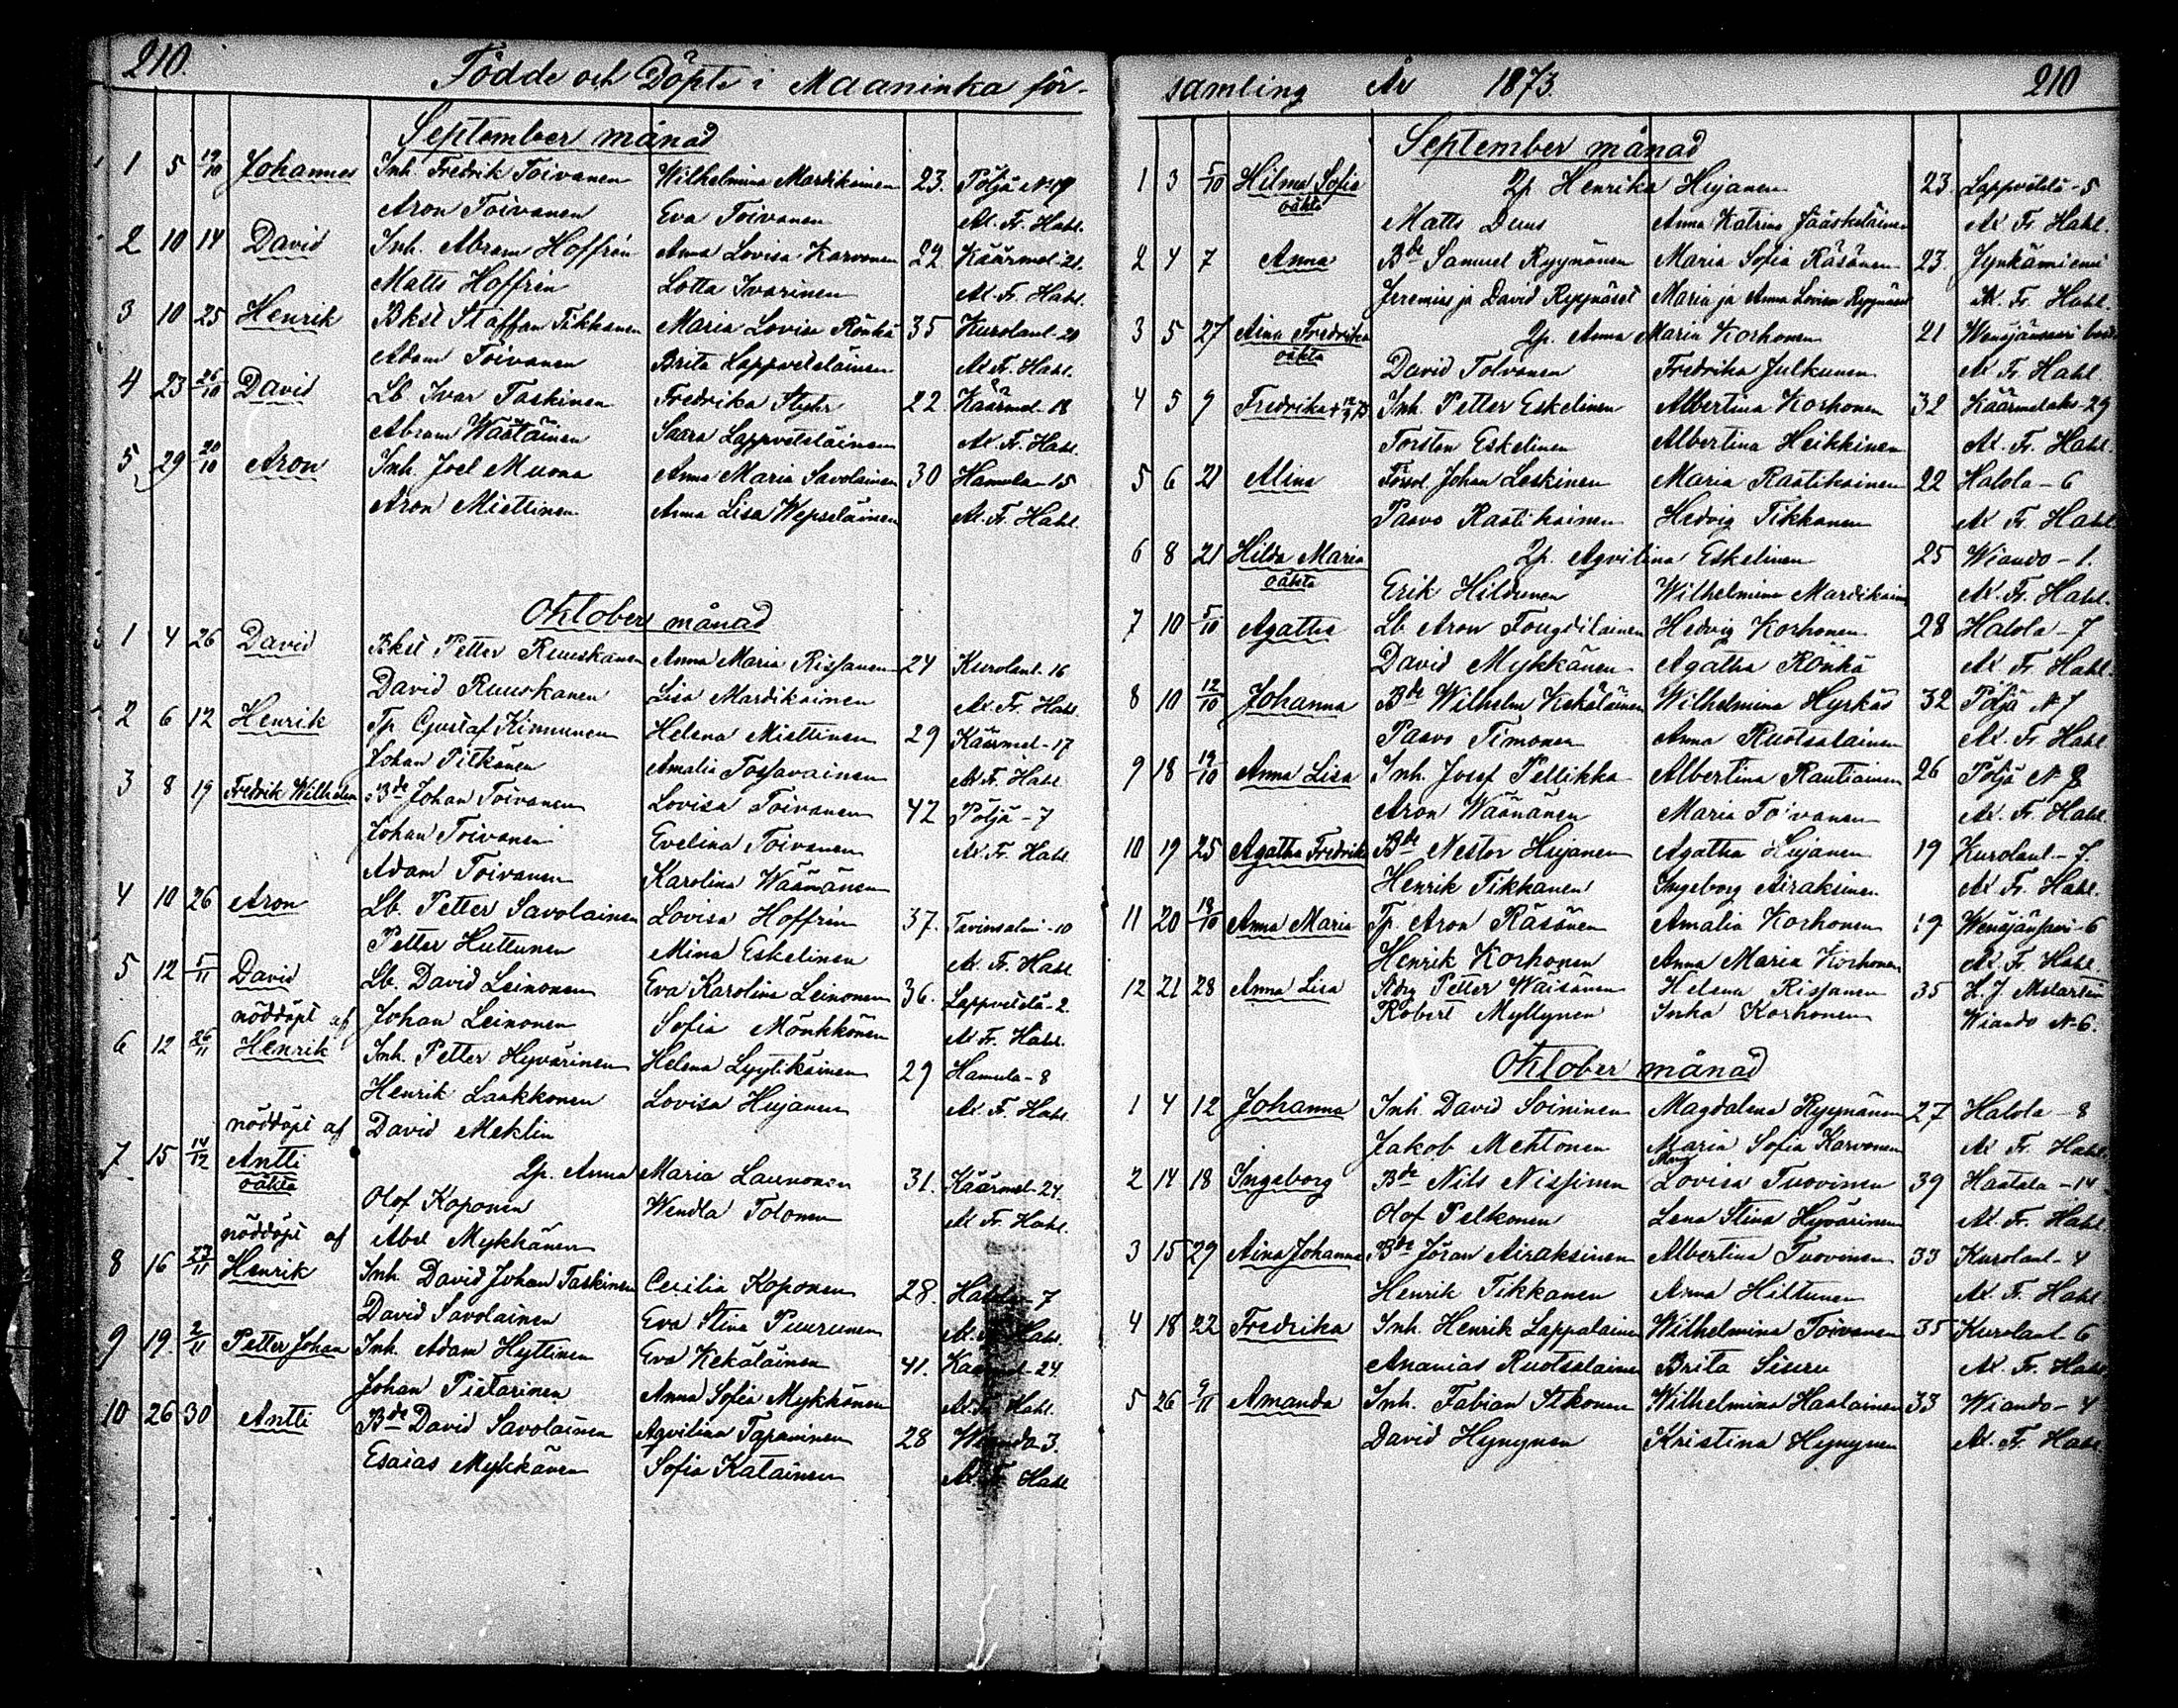 210.
Födde och Döpte i Maaninka för-
September månad
1 5 19/10 Johannes Inh. Fredrik Toivanen Wilhelmina Mardikainen 23. Pöljä N 19
Aron Toivanen Eva Toivanen Ax. Fr. Hahl.
2 10 14 David Inh. Abram Hoffrén Anna Lovisa Karvonen 22. Käärmel-21.
Matts Hoffrén Lotta Ivarinen Ax. Fr. Hahl.
3 10 25 Henrik Bkst Staffan Tikkanen Maria Lovisa Rönkä 35 Kurolant-20
Adam Toivanen Brita Lappveteläinen Ax. Fr. Hahl.
4 23 26/10 David Lb. Ivar Taskinen Fredrika Styhr 22 Käärmel-18
Abram Wäätäinen Saara Lappveteläinen Ax. Fr. Hahl.
5 29 20/10 Aron Inh. Joel Muona Anna Maria Savolainen 30 Hamula-15
Aron Miettinen Anna Lisa Wepseläinen Ax. Fr. Hahl.
Oktober månad
1 4 26 David Bkst Petter Ruuskanen Anna Maria Rissanen 24 Kurolant-16
David Ruuskanen Lisa Mardikainen Ax. Fr. Hahl.
2 6 12 Henrik Tp. Gustaf Kinnunen Helena Miettinen 29 Käärmel-17
Johan Pitkänen Amalia Tossavainen Ax. Fr. Hahl
3 8 19 Fredrik Wilhelm Bde Johan Toivanen Lovisa Toivanen 42 Pöljä-7
Johan Toivanen Evelina Toivanen Ax. Fr. Hahl
Adam Toivanen Karolina Wäänänen
4 10 26 Aron Lb. Petter Savolainen Lovisa Hoffrén 37. Tavinsalmi-10
Petter Huttunen Mina Eskelinen Ax. Fr. Hahl
5 12 5/11 David Lb. David Leinonen Eva Karolina Leinonen 36. Lappvetelä-2.
nöddöpt af Johan Leinonen Sofia Mönkkönen Ax. Fr. Hahl.
6 12 26/11 Henrik Inh. Petter Hyvärinen Helena Lyytikäinen 29 Hamula-8
Henrik Laakkonen Lovisa Hujanen Ax. Fr. Hahl.
nöddöpt af David Meklin
7 15 14/12 Antti Qp. Anna Maria Launonen 31. Käärmel-24.
oäkta Olof Koponen Wendla Tolonen Ax Fr. Hahl.
nöddöpt af Abel Mykkänen
8 16 23/11 Henrik Inh. David Johan Taskinen Cecilia Koponen 28. Halola-7
David Savolainen Eva Stina Puurunen Ax. Fr. Hahl.
9 19. 2/11 Petter Johan Inh. Adam Hyttinen Eva Kekäläinen 41. Käärmel-24.
Johan Pietarinen Anna Sofia Mykkänen Ax. Fr. Hahl.
10 26 30 Antti Bde David Savolainen Aqvilina Tapaninen 28 Wiando-3.
Esaias Mykkänen Sofia Katainen Ax. Fr. Hahl
samling År 1873. 210
September månad
1 3 5/10 Hilma Sofia Qp. Henrika Hujanen 23. Lappvetelä-5
oäkta Matts Duus Anna Katrina Jääskeläinen Ax Fr. Hahl.
2 4 7 Anna Bde Samuel Ryynänen Maria Sofia Räsänen 23. Jynkämiemi
Jeremias ja David Ryynäset Maria ja Anna Lovisa Ryynänen Ax. Fr. Hahl.
3 5 27 Aina Fredrika Qp. Anna Maria Korhonen 21
oäkta David Tolvanen Fredrika Julkunen Ax Fr. Hahl.
4 5 9 Fredrika Inh. Petter Eskelinen Albertina Korhonen 32 Käärmelaks-29
Torsten Eskelinen Albertina Heikkinen Ax. Fr. Hahl.
5 6 21 Alina Johan Leskinen Maria Raatikainen 22 Halola-6
Paavo Raatikainen Hedvig Tikkanen Ax Fr. Hahl
6 8 21 Hilda Maria Qp. Aqvilina Eskelinen 25 Wiando-1.
oäkta Erik Hildunen Wilhelmina Mardikain Ax. Fr. Hahl.
7 10 5/10 Agatha Lb Aron Fougdilainen Hedvig Korhonen 28 Halola-7
David Mykkänen Agatha Rönkä Ax Fr. Hahl.
8 10 12/10 Johanna Bde Wilhelm Kekäläinen Wilhelmina Hyrkäs 32 Pöljä N 7
Paavo Timonen Anna Ruotsalainen Ax. Fr. Hahl
9 18 19/10 Anna Lisa Inh. Josef Pellikka Albertina Rautiainen 26 Pöljä N 8
Aron Wäänänen Maria Toivanen Ax. Fr. Hahl.
10 19 25 Agatha Fredrika Bde Nestor Hujanen Agatha Hujanen 19 Kurolant-7.
Henrik Tikkanen Ingeborg Airaksinen Ax Fr. Hahl.
11 20 18/10 Anna Maria Tp. Aron Räsänen Amalia Korhonen 19 Wenäjänsaari-6
Henrik Korhonen Anna Maria Korhonen Ax. Fr. Hahl.
12 21 28 Anna Lisa Petter Wäisänen Helena Rissanen 35 K. J. Molarius
Robert Myllynen Inka Korhonen Wiando N-6.
Oktober månad
1 4 12 Johanna Inh. David Soininen Magdalena Ryynänen 27 Halola-8
Jakob Mehtonen Maria Sofia Karvonen Ax Fr. Hahl.
2 14 18 Ingeborg Bde Nils Nissinen Lovisa Tuovinen 39 Haatala-14
Olof Pelkonen Lena Stina Hyvärinen Ax. Fr. Hahl
3 15 29 Aina Johanna Bde Jöran Airaksinen Albertina Tuovinen 33 Kurolant-4
Henrik Tikkanen Anna Hiltunen Ax. Fr. Hahl
4 18 22 Fredrika Inh. Henrik Lappalainen Wilhelmina Toivanen 35 Kurolant-6
Ananias Ruotsalainen Brita Siuru Ax. Fr. Hahl
5 26 9/11 Amanda Inh. Fabian Itkonen Wilhelmina Haatainen 33 Wiando-4
David Hynynen Kristina Hynynen Ax. Fr. Hahl